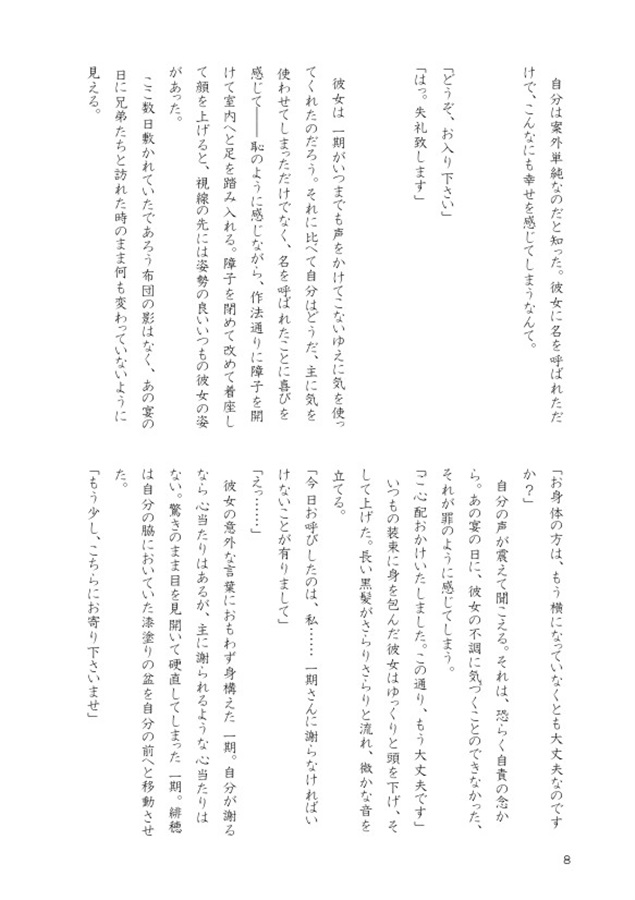 自分は案外単純なのだと知った。彼女に名を呼ばれただ
けで、こんなにも幸せを感じてしまうなんて。
「どうぞ、お入り下さい」
「はっ。失礼致します」
彼女は一期がいつまでも声をかけてこないゆえに気を使っ
てくれたのだろう。それに比べて自分はどうだ、主に気を
使わせてしまっただけでなく、名を呼ばれたことに喜びを
感じて――恥のように感じながら、作法通りに障子を開
けて室内へと足を踏み入れる。障子を閉めて改めて着座し
て顔を上げると、視線の先には姿勢の良いいつもの彼女の姿
があった。
ここ数日敷かれていたであろう布団の影はなく、あの宴の
日に兄弟たちと訪れた時のまま何も変わっていないように
見える。
「お身体の方は、もう横になっていなくとも大丈夫なのです
か？」
自分の声が震えて聞こえる。それは、恐らく自責の念か
ら。あの宴の日に、彼女の不調に気づくことのできなかった、
それが罪のように感じてしまう。
「ご心配おかけいたしました。この通り、もう大丈夫です」
いつもの装束に身を包んだ彼女はゆっくりと頭を下げ、そ
して上げた。長い黒髪がさらりさらりと流れ、微かな音を
立てる。
「今日お呼びしたのは、私……一期さんに謝らなければい
けないことが有りまして」
「えっ……」
彼女の意外な言葉におもわず身構えた一期。自分が謝る
なら心当たりはあるが、主に謝られるような心当たりは
ない。驚きのまま目を見開いて硬直してしまった一期。緋穂
は自分の脇においていた漆塗りの盆を自分の前へと移動させ
た。
「もう少し、こちらにお寄り下さいませ」
8